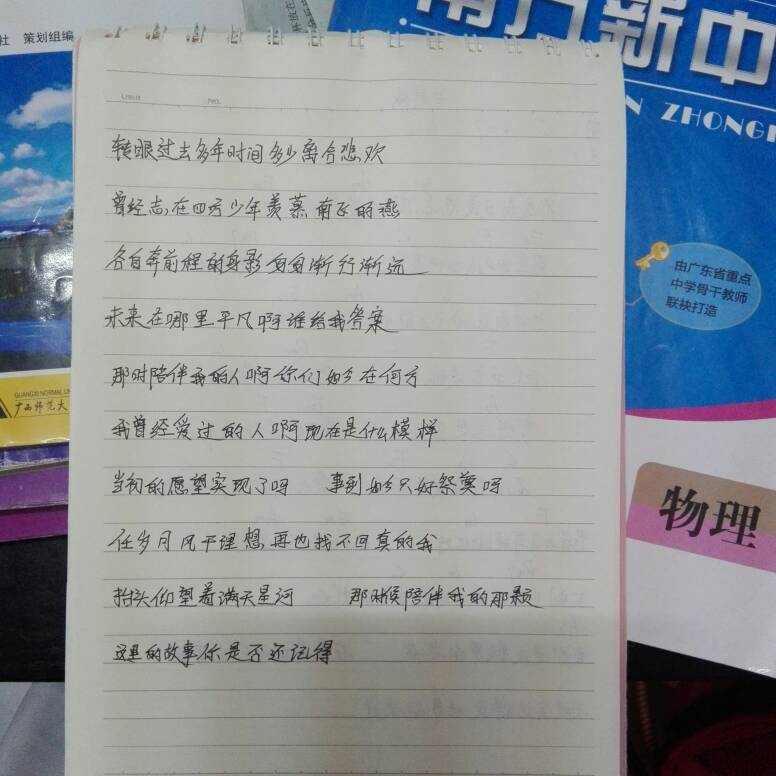 社 策划组编
南方新中
N ZHONGK
Date No.
转眼过去多年时间多少离合悲欢
曾经志在四方少年羡慕南飞的燕
各自奔前程的身影匆匆渐行渐远
未来在哪里平凡啊谁给我答案
那时陪伴我的人啊你们如今在何方
我曾经爱过的人啊现在是什么模样
当初的愿望实现了吗 事到如今只好祭奠吗
任岁月风干理想再也找不回真的我
抬头仰望着满天星河 那时候陪伴我的那颗
这里的故事你是否还记得
由广东省重点
中学骨干教师
联袂打造
物理
GUANGXI NORMAL UN
广西师范大